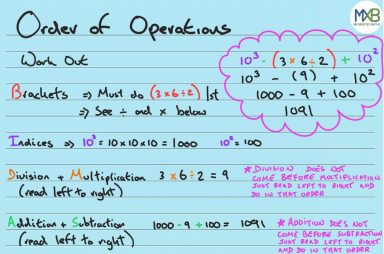 Order of Operations
MXB
Work Out
10³ - (3 × 6 ÷ 2) + 10²
10³ - (9) + 10²
1000 - 9 + 100
1091
Brackets ⇒ Must do (3×6÷2) 1st
⇒ See ÷ and × below
Indices ⇒ 10³ = 10×10×10 = 1000 10² = 100
Division + Multiplication 3×6÷2 = 9
(read left to right)
* DIVISION DOES NOT
COME BEFORE MULTIPLICATION
JUST READ LEFT TO RIGHT AND
DO IN THAT ORDER
Addition + Subtraction 1000 - 9 + 100 = 1091
(read left to right)
* ADDITION DOES NOT
COME BEFORE SUBTRACTION
JUST READ LEFT TO RIGHT
AND DO IN THAT ORDER